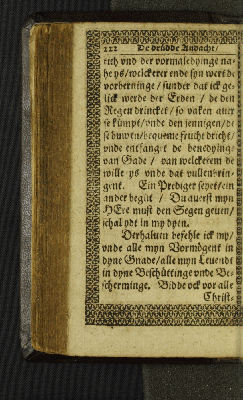 112 De drüdde Andacht/
rich vnd der vormaledyinge na-
he ys/ welckerer ende syn wert de
vorberninge / sunder dat ick ge-
lick werde der Erden / de den
Regen drincket / so vaken auer
se kümpt/ vnde den jennigen/ de
se buwen/ bequeme frucht bricht/
vnde entfanget de benedying/
van Gade / van welckerem de
wille ys vnde dat vullenbrin-
gent. Ein Prediger seyet/ ein
ander begüt / Du auerst myn
HEre must den Segen geuen/
schal ydt in my dyen.
Derhaluen befehle ick my/
vnde alle myn Vormögent in
dyne Gnade/ alle myn Leuendt
in dyne Beschüttinge vnde Be-
scherminge. Bidde ock vor alle
Christ-